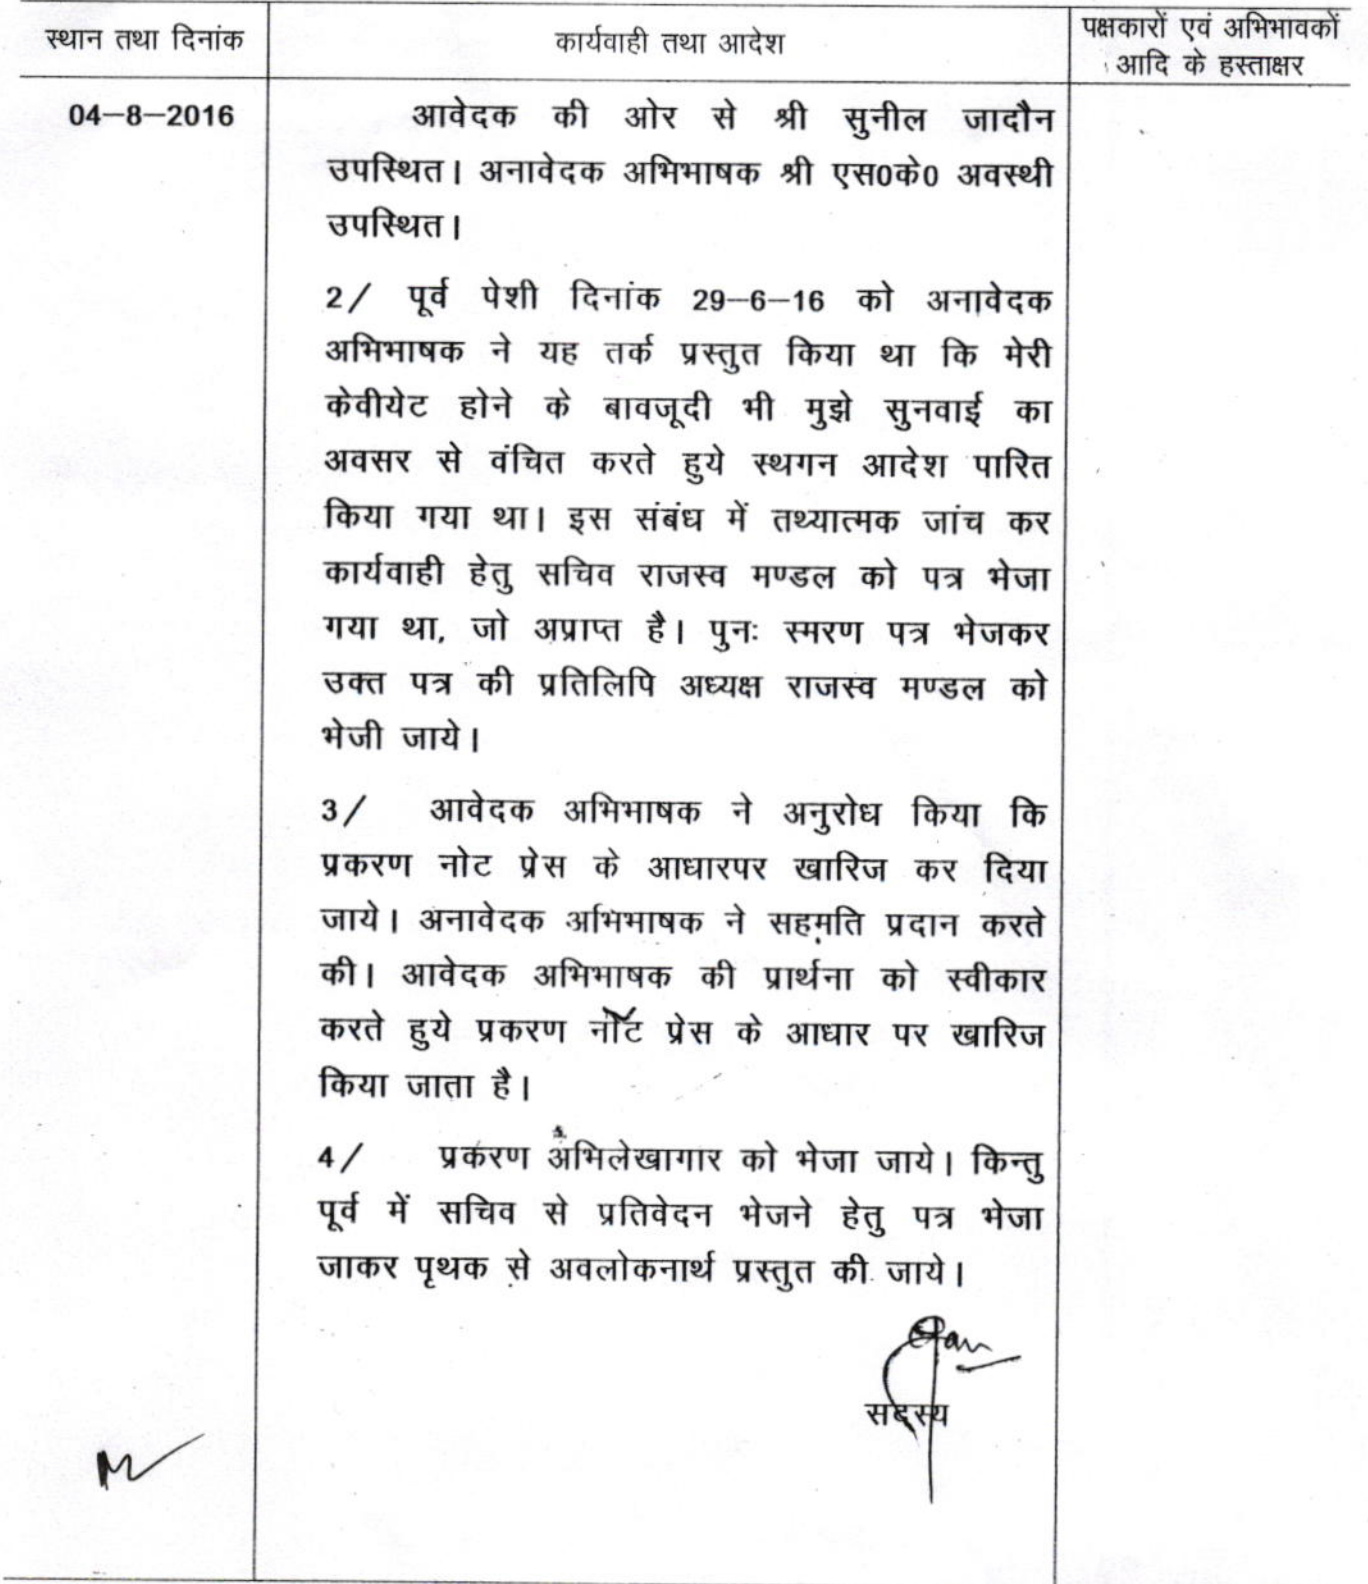 स्थान तथा दिनांक
कार्यवाही तथा आदेश
पक्षकारों एवं अभिभावकों
आदि के हस्ताक्षर
04-8-2016
आवेदक की ओर से श्री सुनील जादौन
उपस्थित। अनावेदक अभिभाषक श्री एस0के0 अवस्थी
उपस्थित।
2/ पूर्व पेशी दिनांक 29-6-16 को अनावेदक
अभिभाषक ने यह तर्क प्रस्तुत किया था कि मेरी
केवीयेट होने के बावजूदी भी मुझे सुनवाई का
अवसर से वंचित करते हुये स्थगन आदेश पारित
किया गया था। इस संबंध में तथ्यात्मक जांच कर
कार्यवाही हेतु सचिव राजस्व मण्डल को पत्र भेजा
गया था, जो अप्राप्त है। पुनः स्मरण पत्र भेजकर
उक्त पत्र की प्रतिलिपि अध्यक्ष राजस्व मण्डल को
भेजी जाये।
3/ आवेदक अभिभाषक ने अनुरोध किया कि
प्रकरण नोट प्रेस के आधारपर खारिज कर दिया
जाये। अनावेदक अभिभाषक ने सहमति प्रदान करते
की। आवेदक अभिभाषक की प्रार्थना को स्वीकार
करते हुये प्रकरण नॉट प्रेस के आधार पर खारिज
किया जाता है।
4/ प्रकरण अभिलेखागार को भेजा जाये। किन्तु
पूर्व में सचिव से प्रतिवेदन भेजने हेतु पत्र भेजा
जाकर पृथक से अवलोकनार्थ प्रस्तुत की जाये।
सदस्य